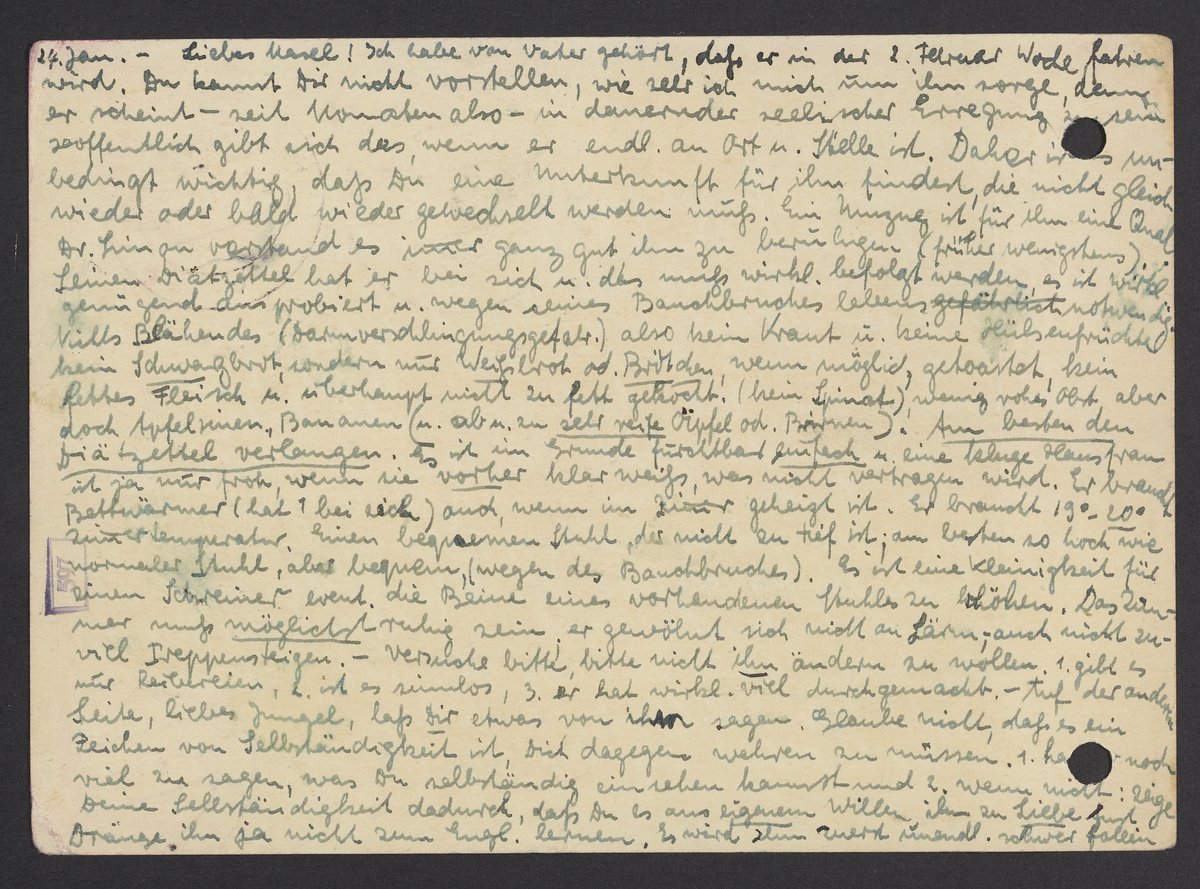 24. Jan. – Liebes Hasel! Ich habe von Vater gehört, daß er in der 2. Februar Woche fahren
wird. Du kannst Dir nicht vorstellen, wie sehr ich mich um ihn sorge, denn
er scheint – seit Monaten also – in dauernder seelischer Erregung zu sein
Hoffentlich gibt sich das, wenn er endl. an Ort u. Stelle ist. Daher is es un-
bedingt wichtig, daß Du eine Unterkunft für ihn findest, die nicht gleich
wieder oder bald wieder gewechselt werden muß. Ein Umzug ist für ihn eine Qual
Dr. verstand es im̅er ganz gut ihn zu beruhigen (früher wenigstens).
Seinen Diätzettel hat er bei sich u. das muß wirkl. befolgt werden, es ist wirkl
genügend ausprobiert u. wegen seines Bauchbruches lebensgefährlich notwendig
Nichts Blähendes (Darmverschlingungsgefahr.) also kein Kraut u. keine Hülsenfrüchte
kein Schwarzbrot, sondern nur Weißbrot od. Brötchen, wenn möglich, getoastet, kein
fettes Fleisch u. überhaupt nicht zu fett gekocht. (kein Spinat), wenig rohes Obst aber
doch Apfelsinen, Bananen (u. ab u. zu sehr reife Äpfel od. Birnen). Am besten den
Diätzettel verlangen. Es ist im Grunde furchtbar einfach u. eine kluge Hausfrau
ist ja nur froh, wenn sie vorher klar weiß, was nicht vertragen wird. Er braucht
Bettwärmer (hat 1 bei sich) auch, wenn im Zim̅er geheizt ist. Er braucht 19°–20°
Zim̅ertemperatur. Einen bequemen Stuhl, der nicht zu tief ist; am besten so hoch wie
normaler Stuhl, aber bequem, (wegen des Bauchbruches). Es ist eine Kleinigkeit für
597
einen Schreiner event. die Beine eines vorhandenen Stuhles zu erhöhen. Das Zim-
mer muß möglichst ruhig sein, er gewöhnt sich nicht an Lärm, auch nicht zu-
viel Treppensteigen. – Versuche bitte, bitte nicht ihn ändern zu wollen. 1. gibt es
nur Reibereien, 2. ist es sinnlos, 3. er hat wirkl. viel durchgemacht. – Auf der andern
Seite, liebes Jungel, laß Dir etwas von ihm sagen. Glaube nicht, daß es ein
Zeichen von Selbständigkeit ist, Dich dagegen wehren zu müssen. 1. ha er noch
viel zu sagen, was Du selbständig einsehen kannst und 2. wenn nicht: zeige
Deine Selbständigkeit dadurch, daß Du es aus eigenem Willen, ihm zu Liebe tust
Dränge ihn ja nicht zum Engl. lernen. Es wird ihm unendl. schwer fallen